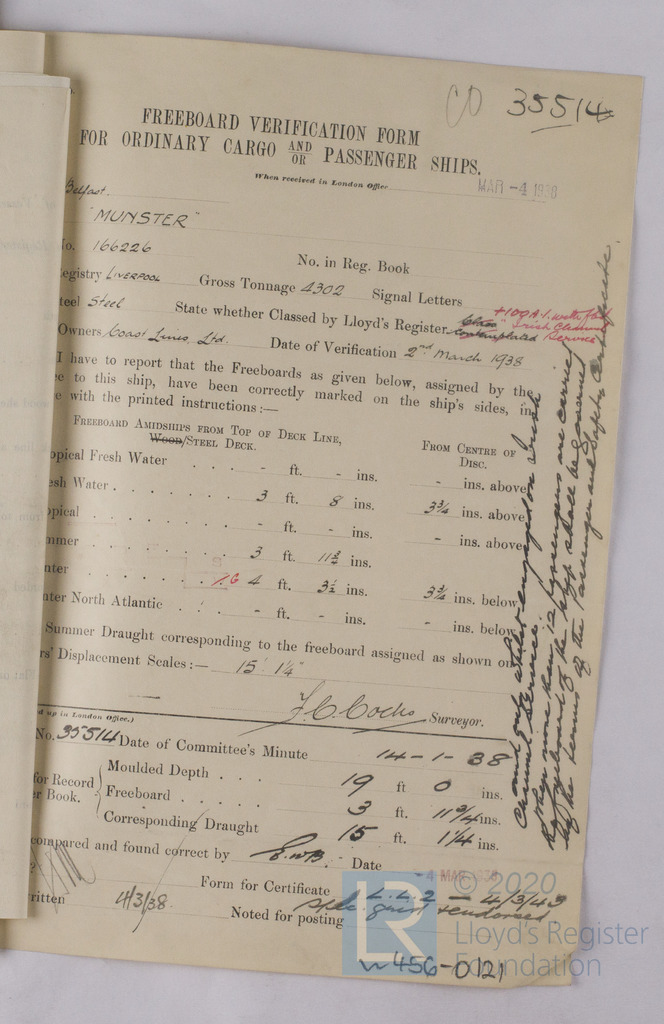 CO 35514
FREEBOARD VERIFICATION FORM
FOR ORDINARY CARGO AND/OR PASSENGER SHIPS.
When received in London Office MAR -4 1938
Belfast.
"MUNSTER"
No. 166226
No. in Reg. Book
egistry LIVERPOOL Gross Tonnage 4302 Signal Letters
teel Steel State whether Classed by Lloyd's Register Class contemplated +100A.1. with fbd "Irish Channel Service"
Owners Coast Lines, Ltd. Date of Verification 2nd March 1938
I have to report that the Freeboards as given below, assigned by the
ee to this ship, have been correctly marked on the ship's sides, in
e with the printed instructions:—
FREEBOARD AMIDSHIPS FROM TOP OF DECK LINE,
WOOD/STEEL DECK.
FROM CENTRE OF
DISC.
opical Fresh Water - ft. - ins. - ins. above
esh Water 3 ft. 8 ins. 3¾ ins. above
opical - ft. - ins. - ins. above
mmer 3 ft. 11¾ ins.
nter 4 ft. 3½ ins. 3¾ ins. below
nter North Atlantic - ft. - ins. - ins. below
Summer Draught corresponding to the freeboard assigned as shown on
rs' Displacement Scales:— 15' 1¼"
F.C. Cocks Surveyor.
d up in London Office.)
No. 35514 Date of Committee's Minute 14-1-38
for Record
er Book.
Moulded Depth 19 ft 0 ins.
Freeboard 3 ft. 11¾ ins.
Corresponding Draught 15 ft. 1¼ ins.
compared and found correct by E.W.B. Date -4 MAR 1938
Form for Certificate L.L.2 - 4/3/43
ritten 4/3/38. Noted for posting Spec. given & endorsed
and only whilst engaged on Irish
Channel Service.
When more than 12 passengers are carried
the freeboard of the ship shall be governed
by the terms of the Passenger and Safety Certificate.
© 2020
LR
Lloyd's Register
Foundation
W456-0121